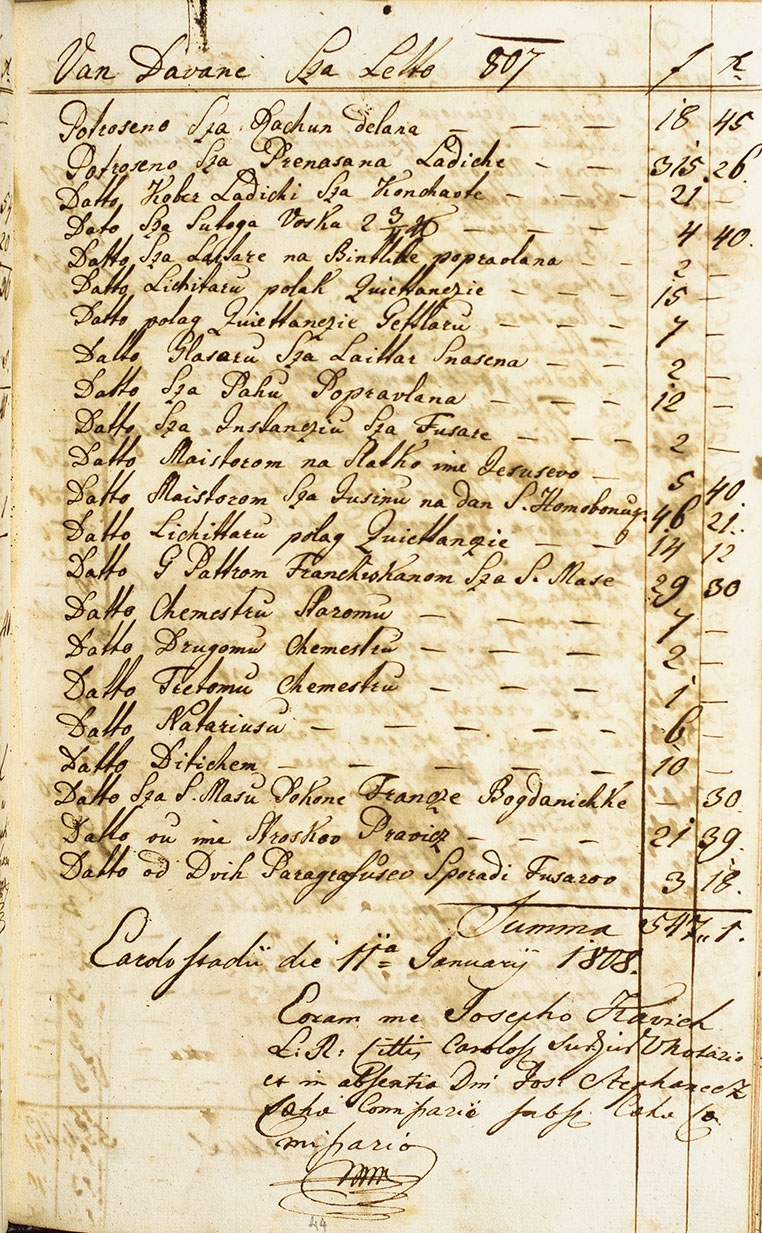 Van Davane Sza Letto 807 f x
Potroseno Sza Rachun delana — — — 18 45
Potroseno Sza Prenasana Ladiche — — 315. 26.
Datto Kober Ladichi Sza Konchaote — — — 21 —
Dato Sza Sutoga Voska 2 3/4 ℔ — — — 4 40.
Datto Sza Laittare na Binttihe popravlana — — 2 —
Datto Lichitaru polak Quiettanczie — — — 15 —
Datto polag Quiettanczie Gettlaru — — — 7 —
Datto Glasaru Sza Laittar Snasena — — 2 —
Datto Sza Pahu Popravlana — — — 12 —
Datto Sza Instancziu Sza Fusare — — — 2 —
Datto Maistorom na Slatko ime Jesusevo — 5 40.
Datto Maistorom Sza Jusinu na dan S. Homobonusz. 46 21.
Datto Lichittaru polag Quiettanczie — — 14 12
Datto G Pattrom Franciskanom Sza S. Mase 29 30
Datto Chemestru Staromu — — — 7 —
Datto Drugomu Chemestru — — — 2 —
Datto Tretomu Chemestru — — — 1 —
Datto Natariusu — — — — — 6 —
Datto Ditichem — — — — — 10 —
Datto Sza S. Masu Pokone Francze Bogdanichke — 30.
Datto vu ime Stroskov Pravicz — — — 21 39.
Datto od Dvih Paragrafusev Sporadi Fusarov 3 18.
Summa 547,, 1.
Carolostadii die 11a Januarij 1808.
Coram me Josepho Kavich
L: R: Cittis Carolost Notario
et in absentia Dni Jos Stephanecz
Cehae Commisario subst. Cehae Co
misario
44